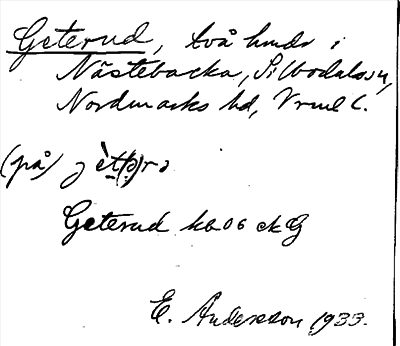 Geterud, två hmdr i
Nästebacka, Silbodals sn,
Nordmarks hd, Vrml l.
(på) jèt(ə)rə
Geterud kbo6 ekG
E. Andersson 1933.